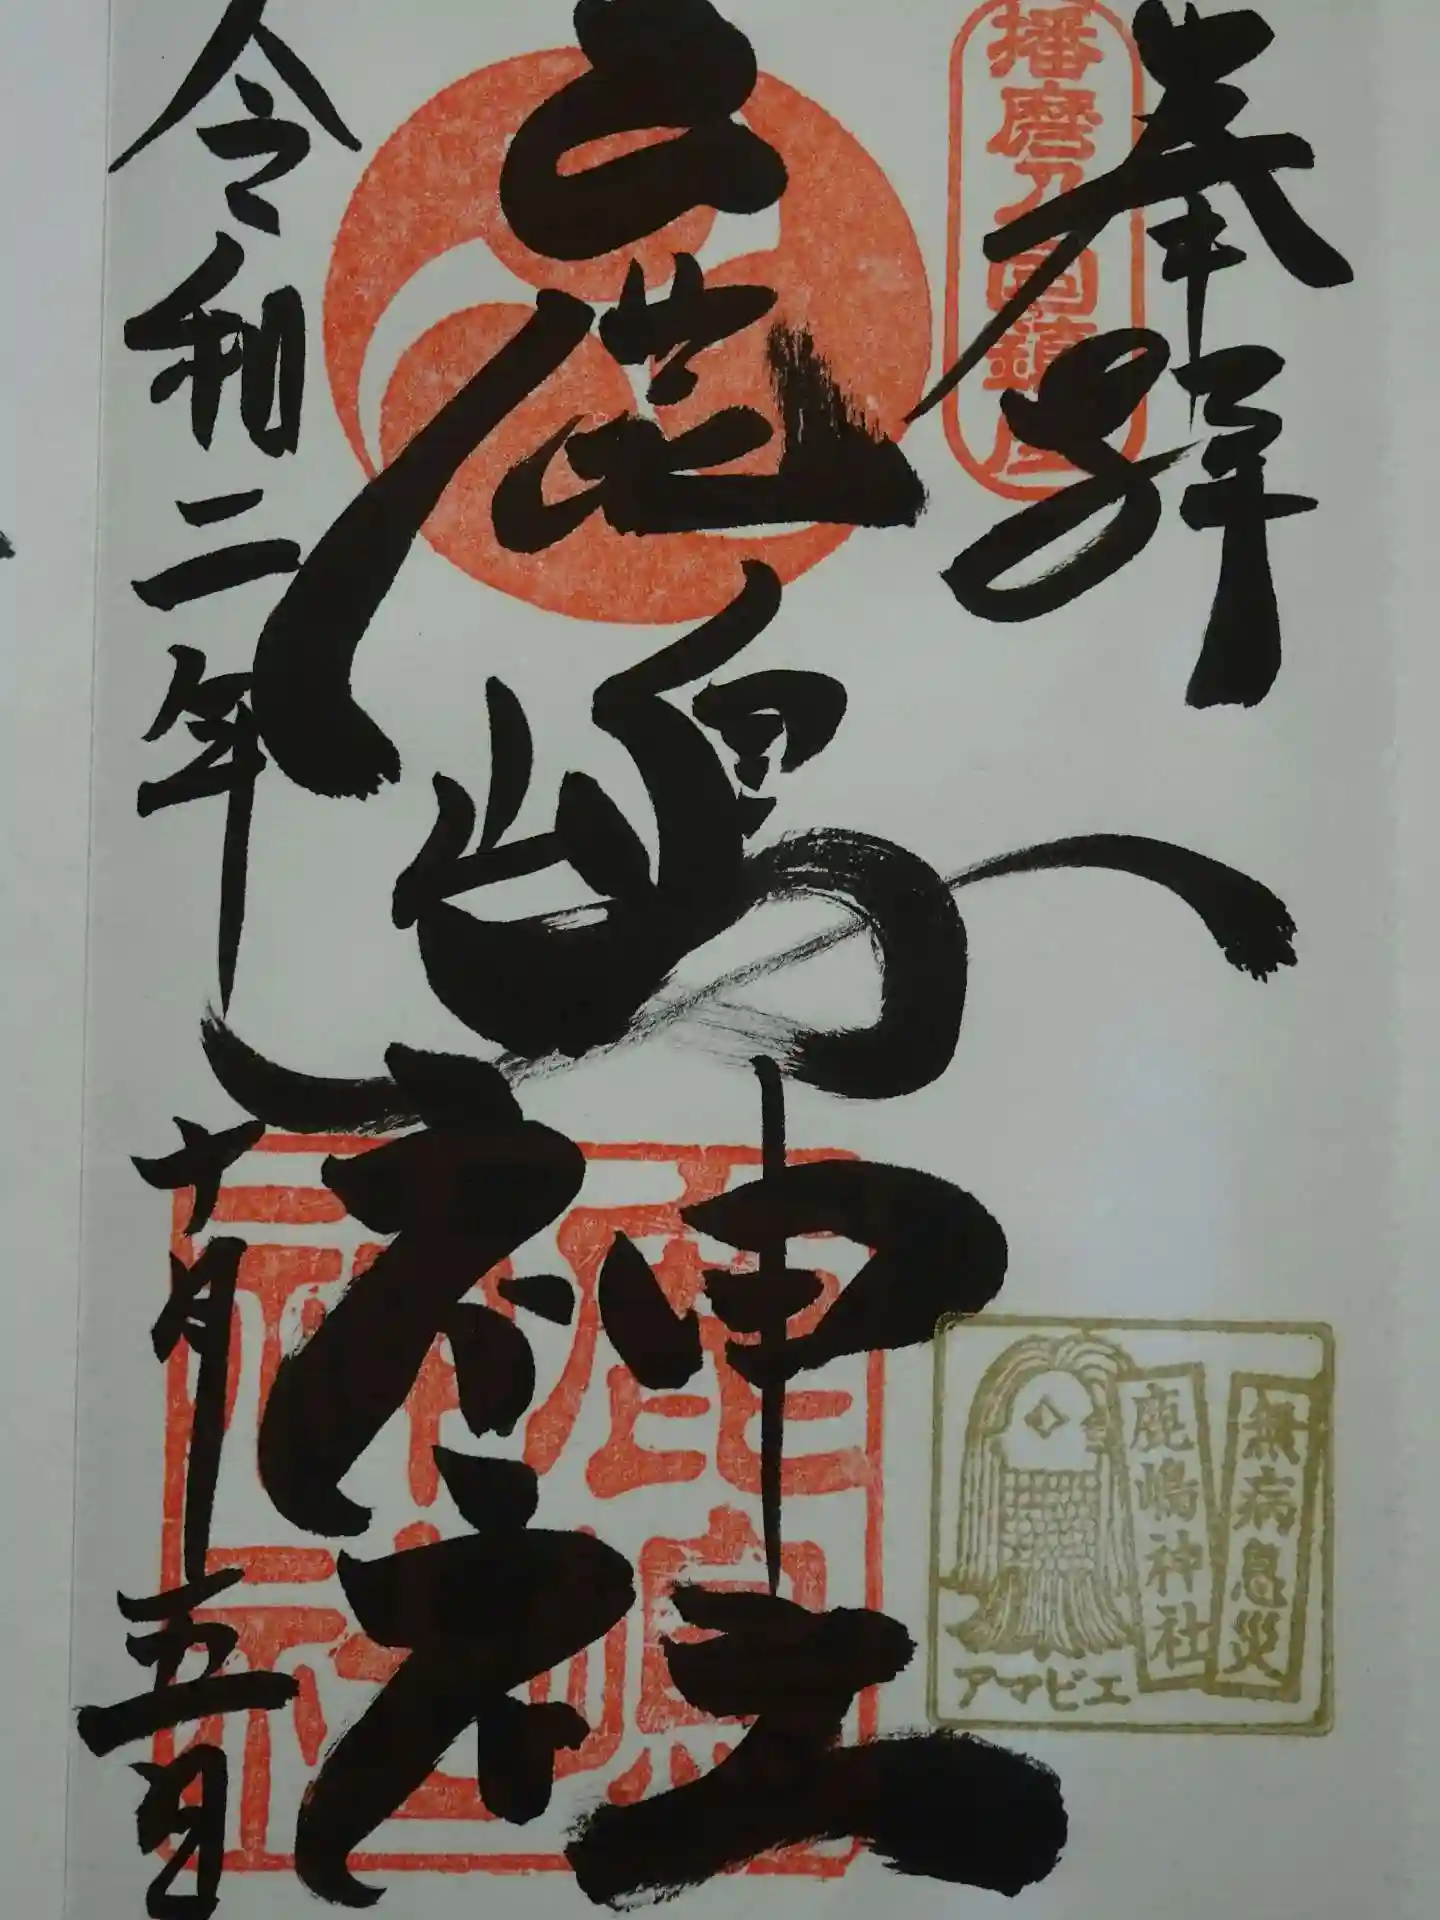 奉拝
播磨乃国鎮座
鹿嶋神社
令和二年十月五日
鹿嶋神社
無病息災
鹿嶋神社
アマビエ